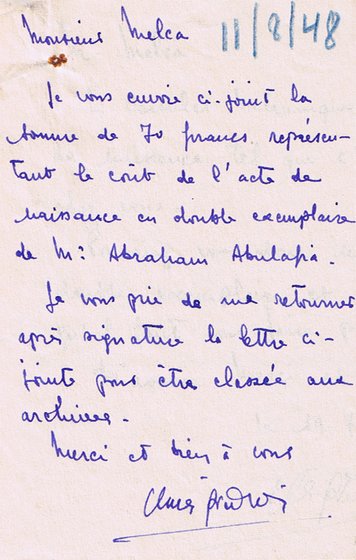 Monsieur Melca
11/8/48
Je vous envoie ci-joint la
somme de 70 francs représen-
tant le coût de l'acte de
naissance en double exemplaire
de Mr Abraham Abulafia.
Je vous prie de me retourner
après signature la lettre ci-
jointe pour être classée aux
archives.
Merci et bien à vous